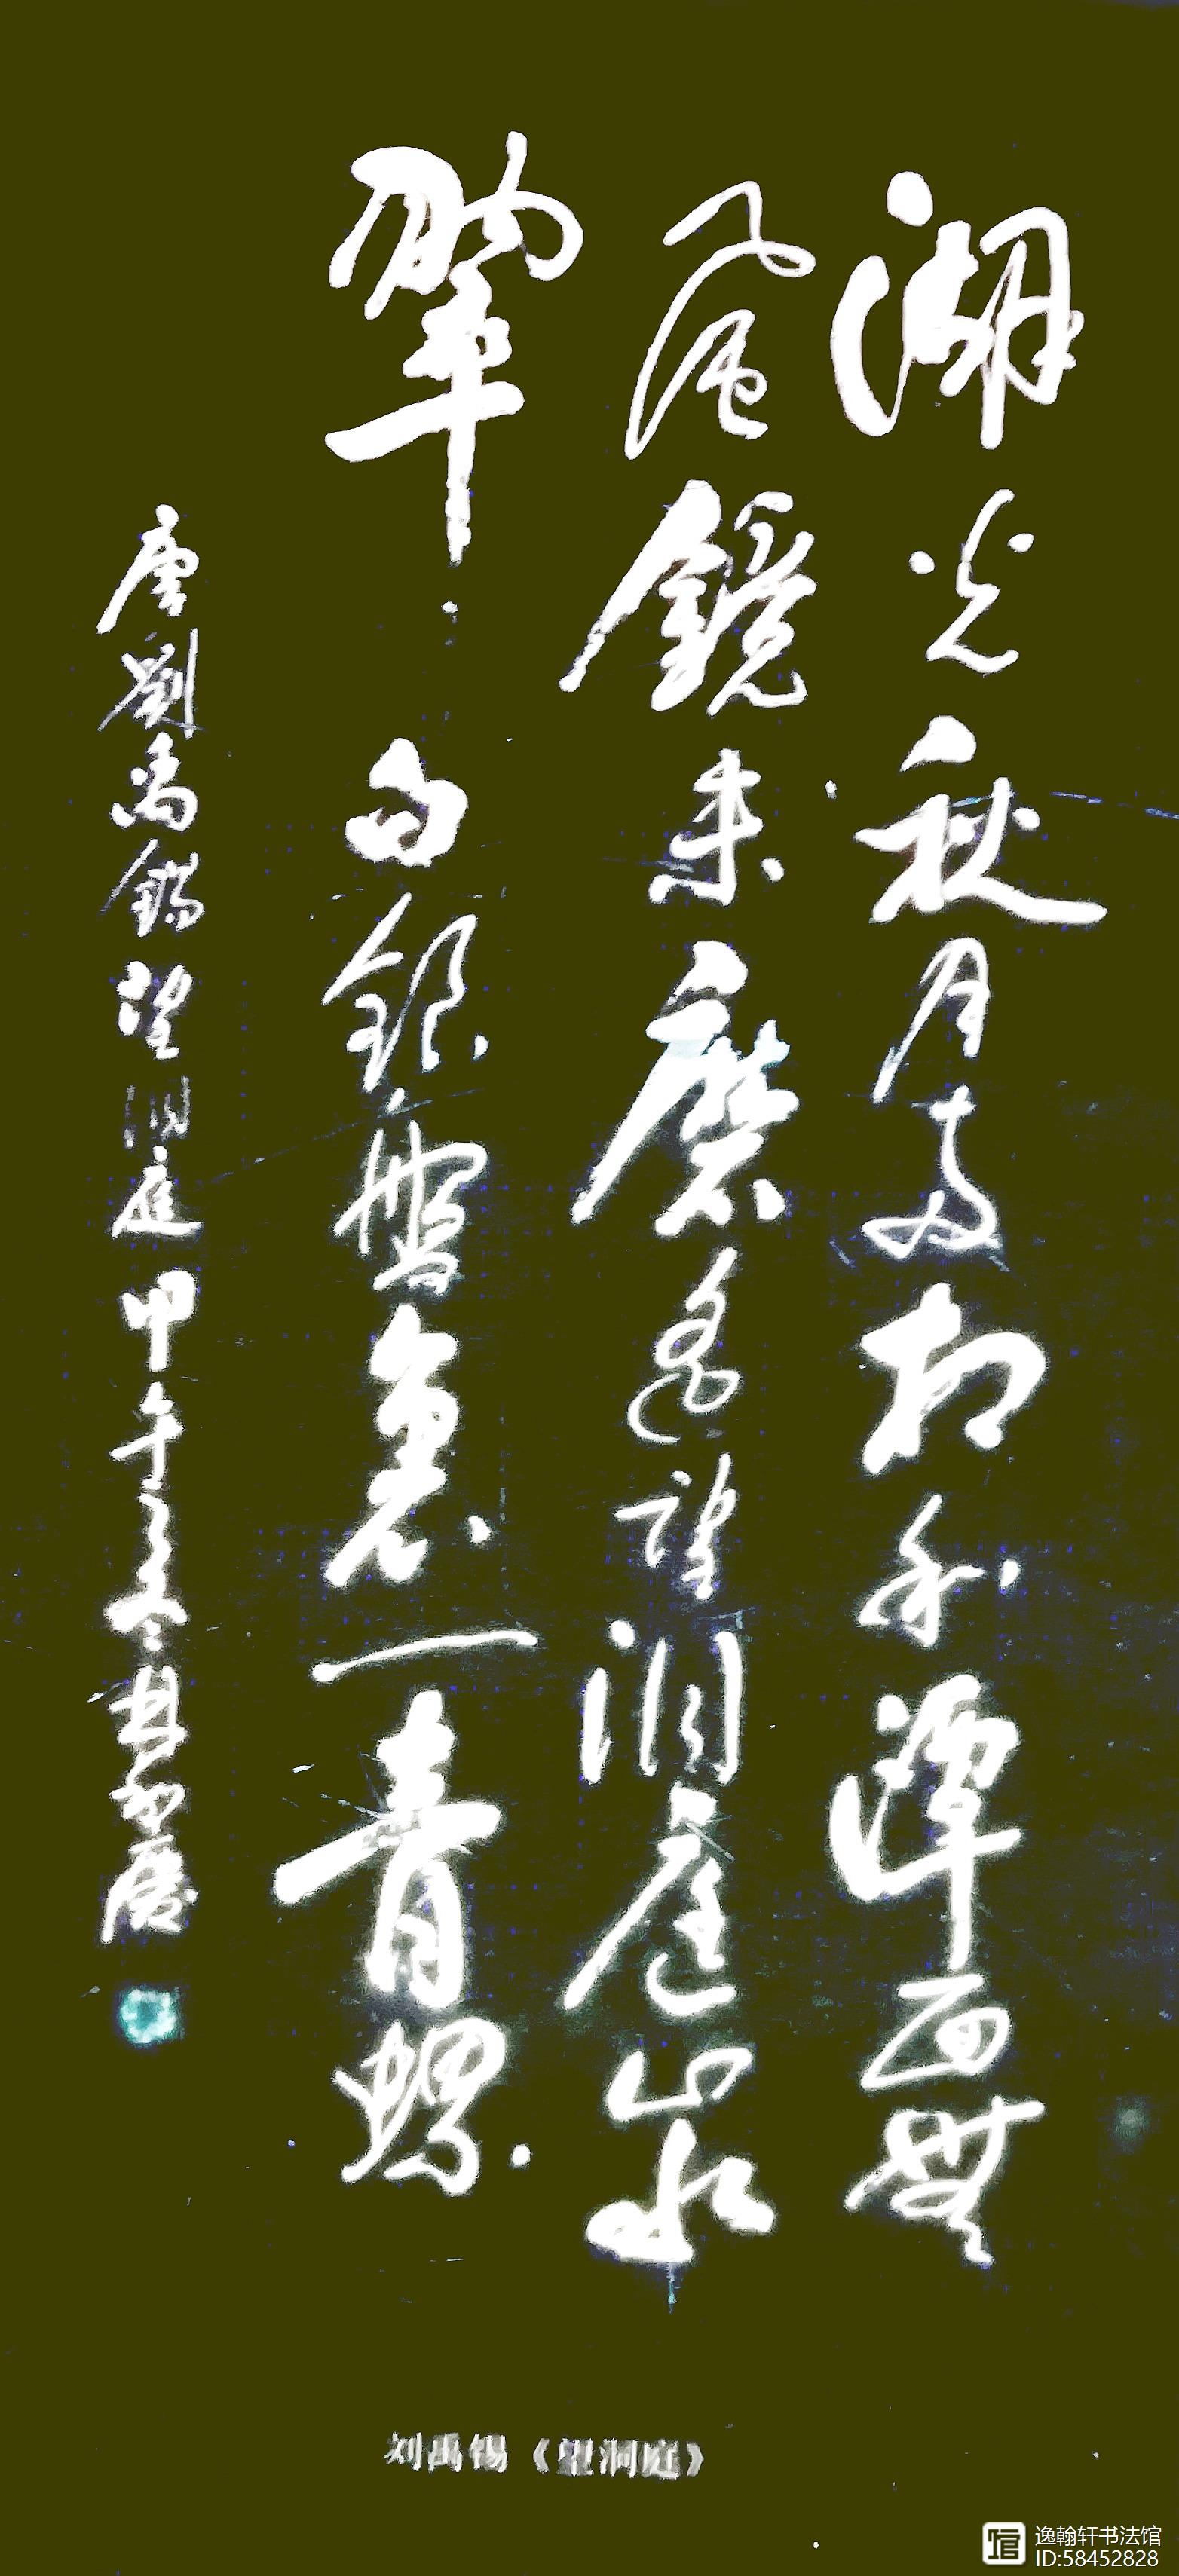 湖光秋月两相和潭面無
風鏡未磨遥望洞庭山水
翠白銀盤裏一青螺
唐劉禹錫望洞庭甲午之冬
刘禹锡《望洞庭》
逸翰轩书法馆
ID:58452828